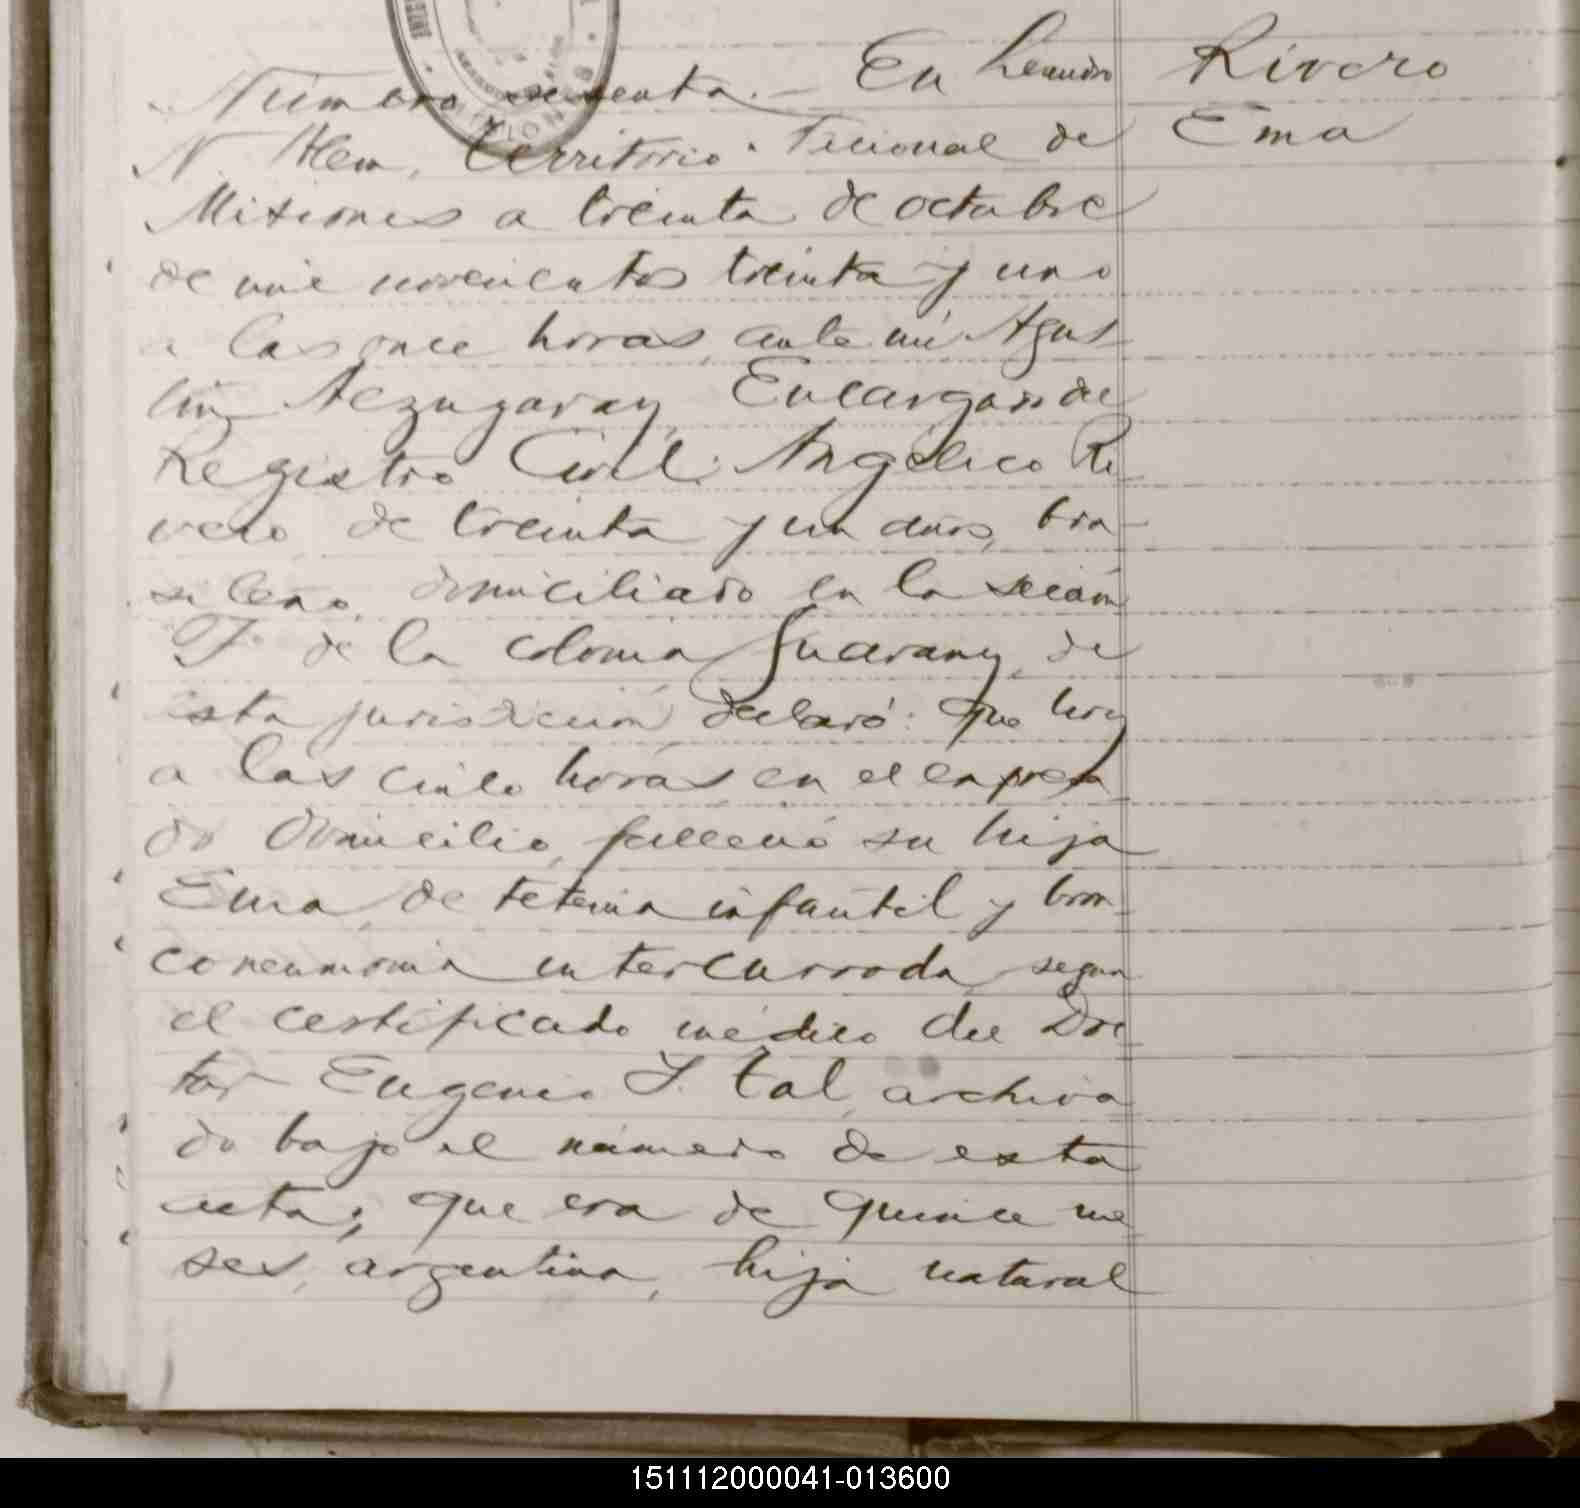 Número sesenta.- En Leandro
N. Alem, Territorio Nacional de
Misiones a treinta de octubre
de mil novecientos treinta y uno
a las once horas, ante mi Agus
tin Aczugaray, Encargado del
Registro Civil: Angélico Ri
vero, de treinta y un años, bra-
sileño, domiciliado en la sección
de la colonia Guarany, de
esta jurisdicción declaró: que hoy
a las cinco horas en el expresa
do domicilio, falleció su hija
Ema, de infantil y bron-
coneumonia intercurrada, segun
el certificado médico del Doc
tor Eugenio Tal, archiva
do bajo el número de esta
acta; que era de quince me
ses, argentina, hija natural
Rivero
Ema
151112000041-013600